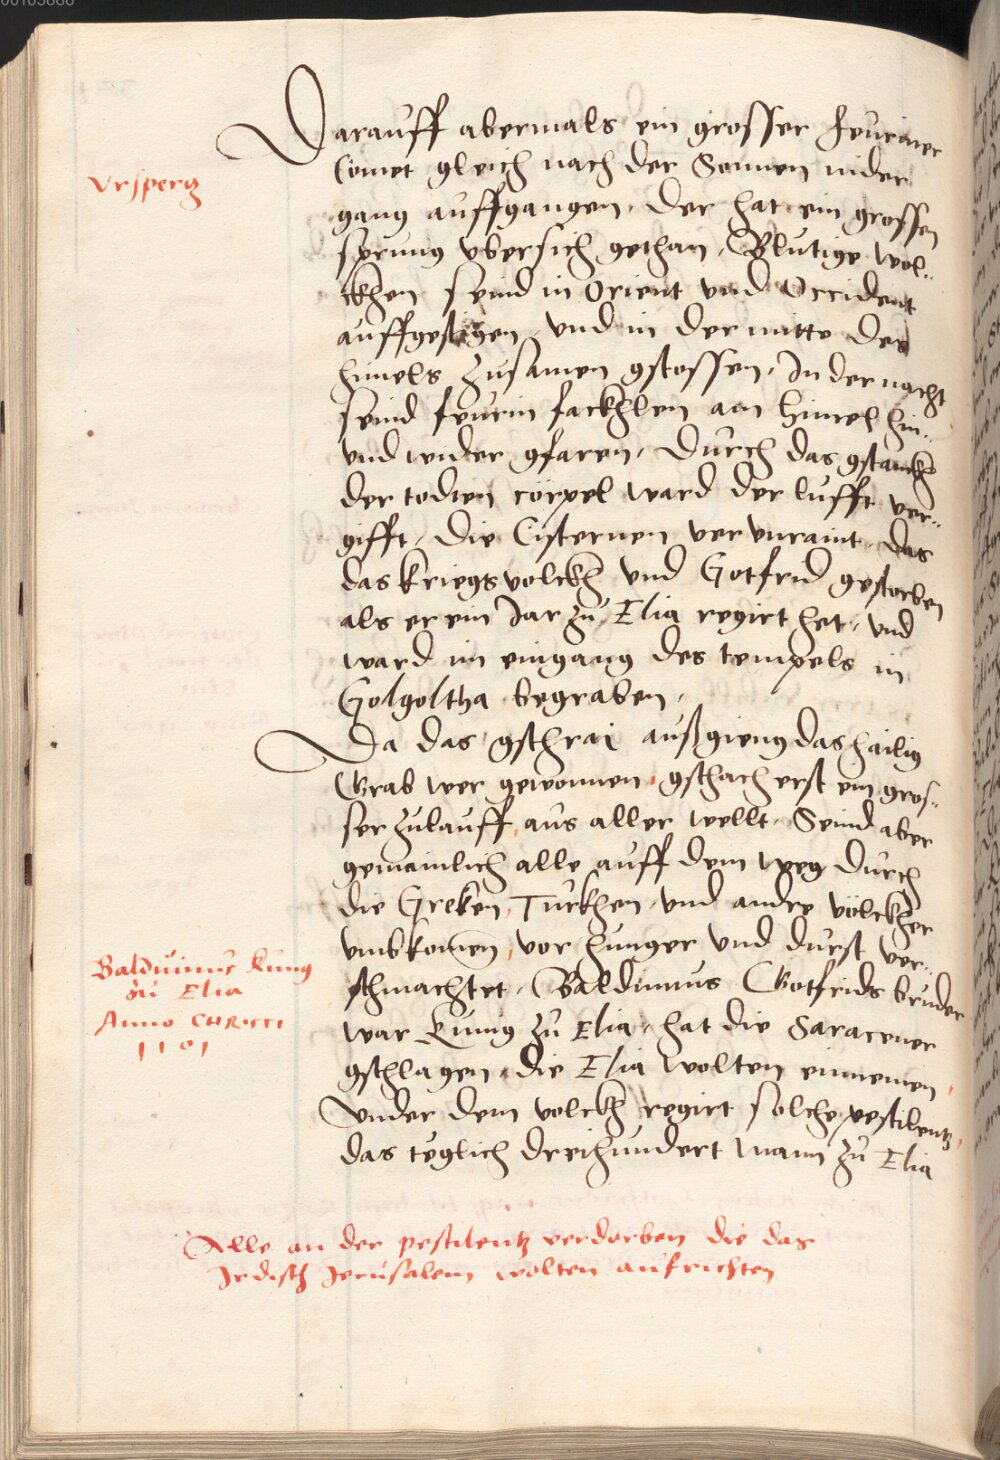 00105888
Darauff abermals ein grosser feuriner
Comet gleich nach der Sonnen nider
Vrsperg
gang auffgangen, der hat ein grossen
sprung vbersich gethan, Blutige wol-
ckhen seind in Orient vnd Occident
auffgestigen, vnd in der mitte des
himels zusamen gstossen, In der nacht
seind feurin fackhlen am himel hin-
vnd wider gfaren, durch das gstanckh
der todten cörpel ward der lufft ver-
gifft, die Cisternen vervnraint, das
das kriegsvolckh vnd Gotfrid gestorben
als er ein Jar zu Elia regirt het, vnd
ward im eingang des tempels in
Golgoltha begraben,
Da das gschrai außgieng das hailig
Grab wer gewonnen, gschach erst ein gros-
ser zulauff aus aller wellt, Seind aber
gemainlich alle auff dem weg durch
die Greken, Türkhen, vnd andre völckher
vmbkomen, vor hunger vnd durst ver-
schmachtet, Baldiuinus Gotfrids bruder
Balduinus kung
zu Elia
Anno CHRISTI
1101
war kunig zu Elia, hat die Saracener
gschlagen, die Elia wolten einnemen,
Vnder dem volckh regirt solche pestilentz,
das teglich dreihundert mann zu Elia
Alle an der pestilentz verdorben die das
Irdisch Jerusalem wolten aufrichten